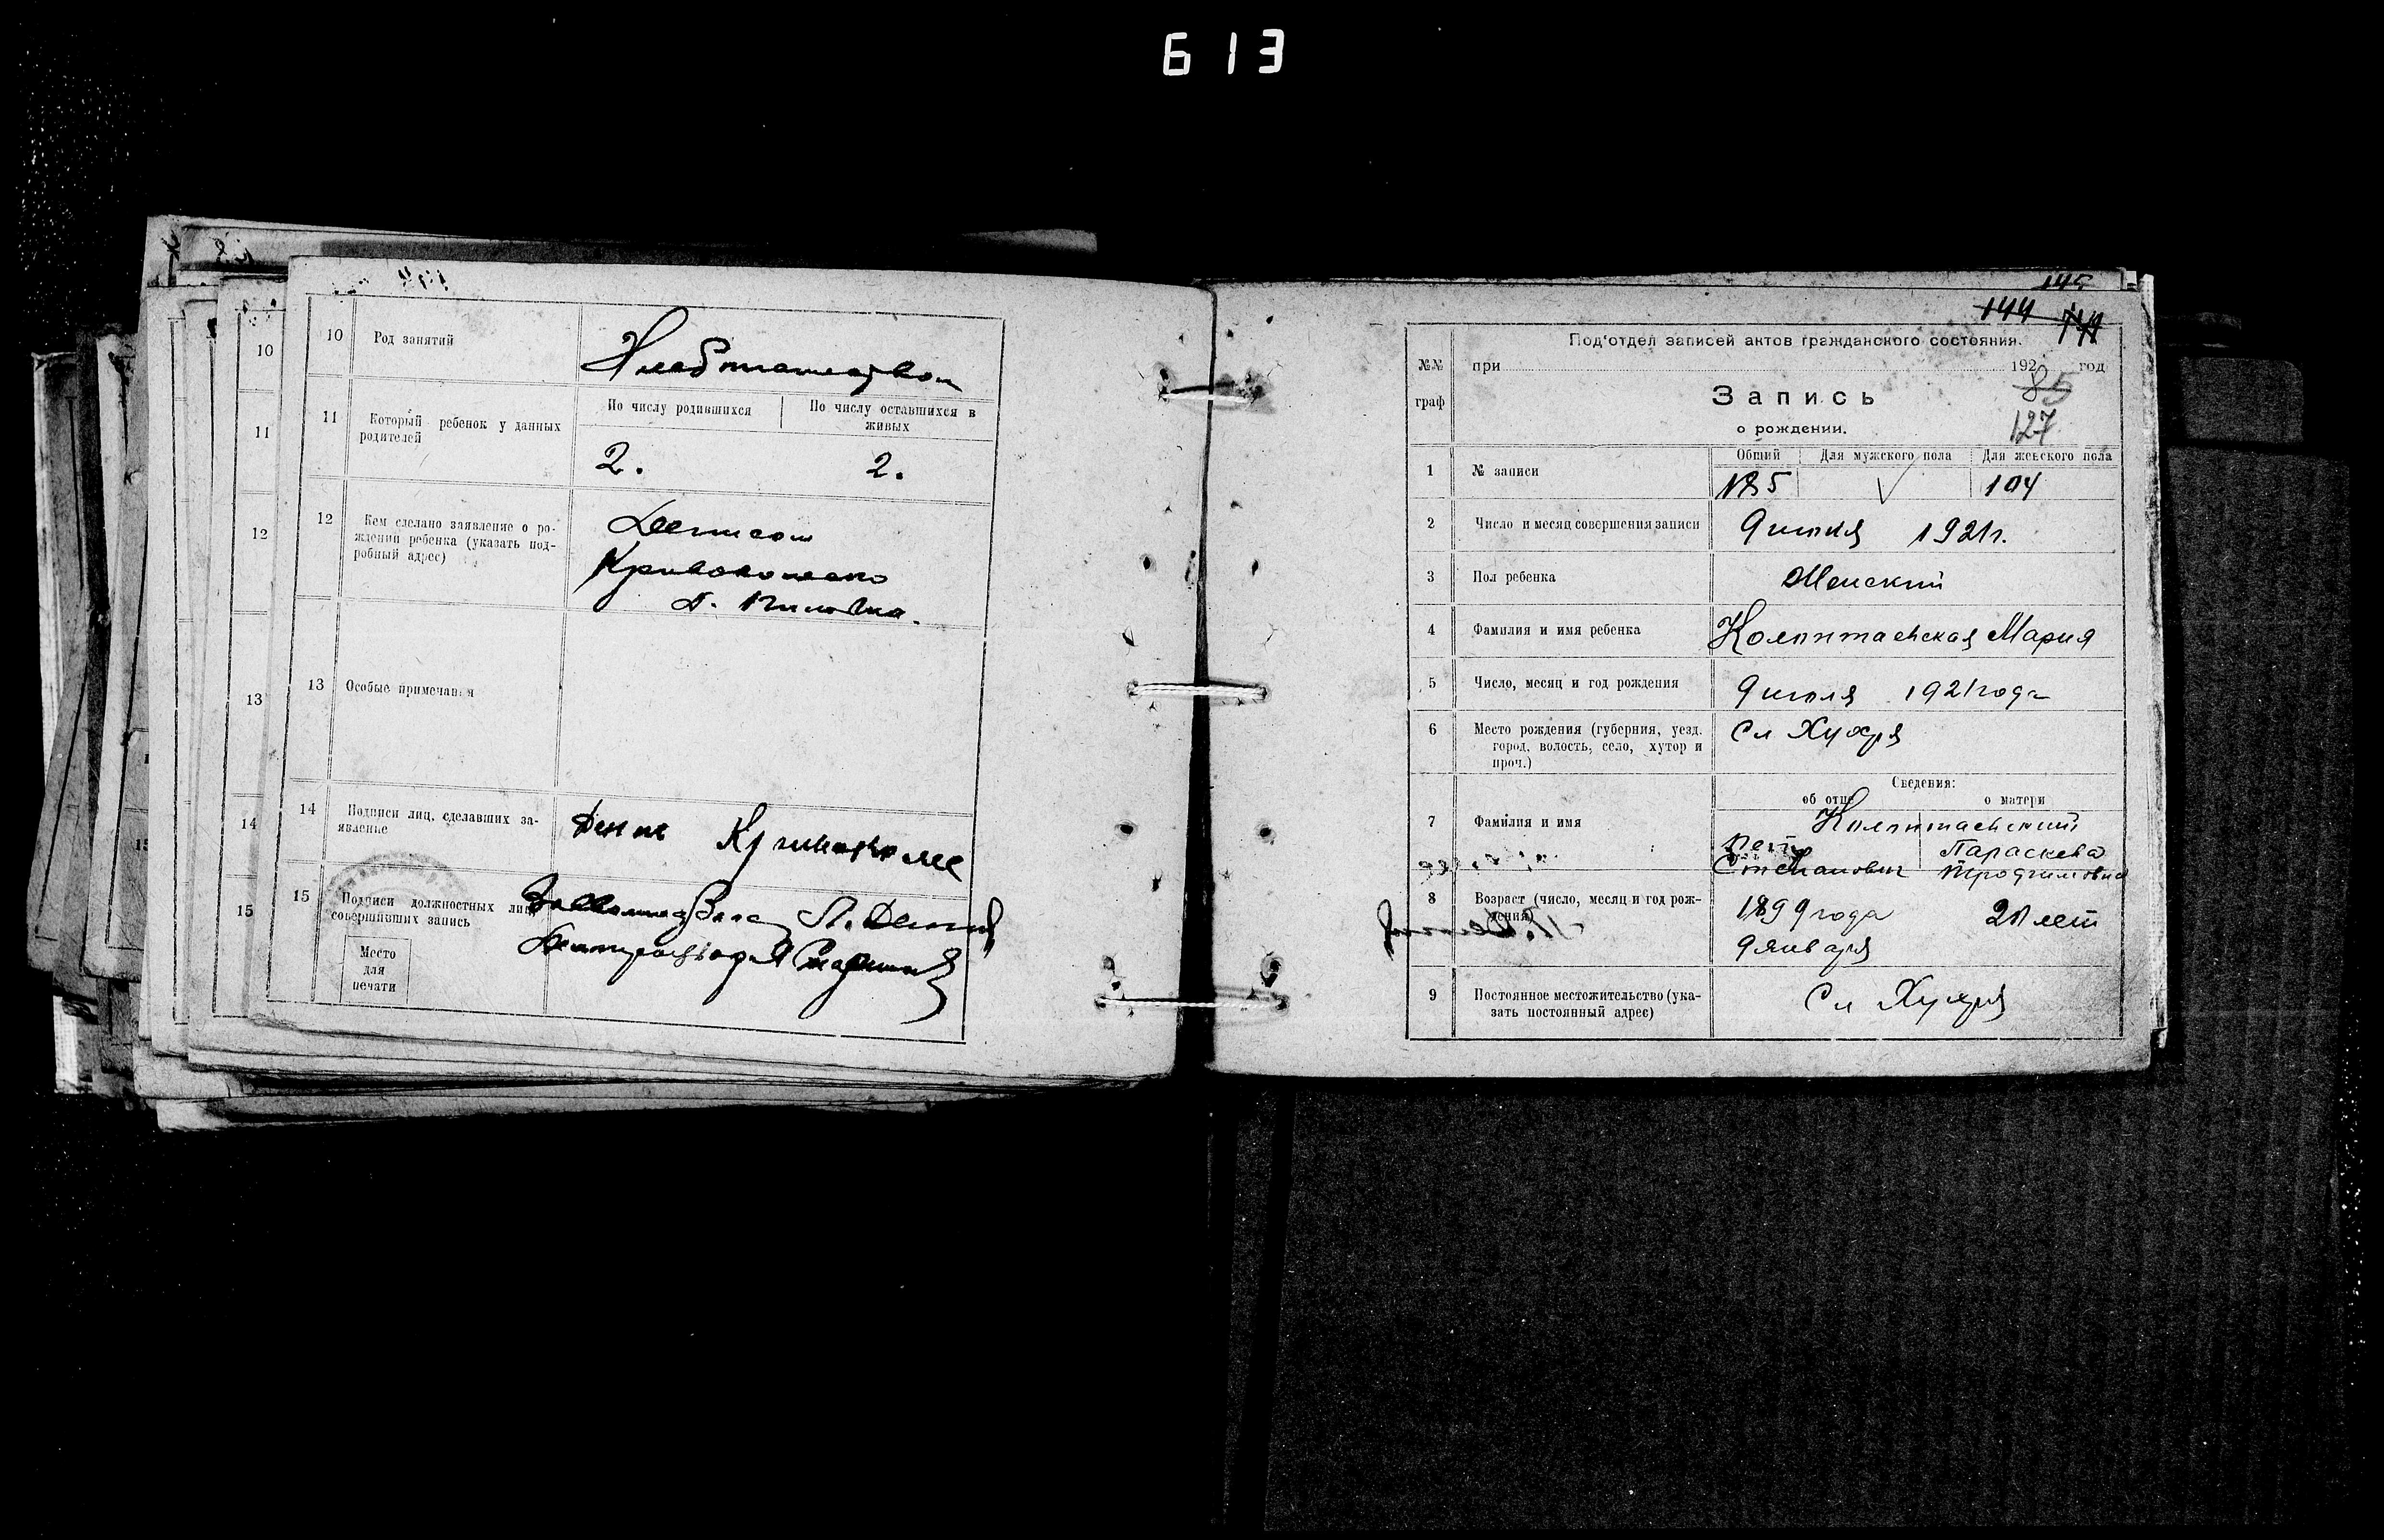 613
10 Род занятий Хлебопашеством
11 Который ребенок у данных родителей
По числу родившихся
По числу оставшихся в живых
2. 2.
12 Кем сделано заявление о ро-
ждении ребенка (указать под-
робный адрес)
Денисом
13 Особые примечания
14 Подписи лиц, сделавших за-
явление
Денис
15 Подписи должностных лиц,
совершивших запись
Место
для
печати
10
11
12
13
14
15
145
144
Под'отдел записей актов гражданского состояния.
№№ граф
при 192 год
85
Запись
127
о рождении.
1 № записи
Общий Для мужского пола Для женского пола
185 104
2 Число и месяц совершения записи 9 июля 1921 г.
3 Пол ребенка Женский
4 Фамилия и имя ребенка Мария
5 Число, месяц и год рождения 9 июля 1921 года
6 Место рождения (губерния, уезд,
город, волость, село, хутор и
проч.)
Сл Хухря
Сведения:
об отце о матери
7 Фамилия и имя
Петр Параскева
Степанович Трофимовна
8 Возраст (число, месяц и год рож-
дения)
1899 года
9 января
9 Постоянное местожительство (ука-
зать постоянный адрес)
Сл Хухря